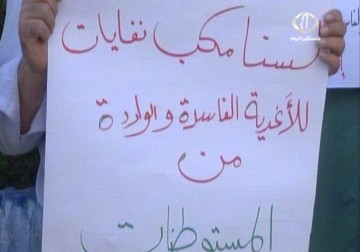 لسنا مكب نفايات
للأغذية الفاسدة والواردة
من
المستوطنات